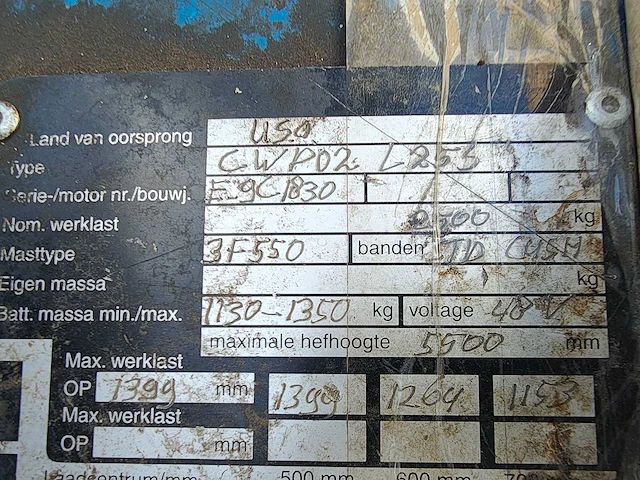 Land van oorsprong USA
Type CWP02 L25S
Serie-/motor nr./bouwj. E9C1830
Nom. werklast 2500 kg
Masttype 3F550 banden STD CUSH
Eigen massa kg
Batt. massa min./max. 1130-1350 kg voltage 48 V
maximale hefhoogte 5500 mm
Max. werklast
OP 1399 mm 1399 1264 1153
Max. werklast
OP mm
Laadcentrum/mm 500 mm 600 mm